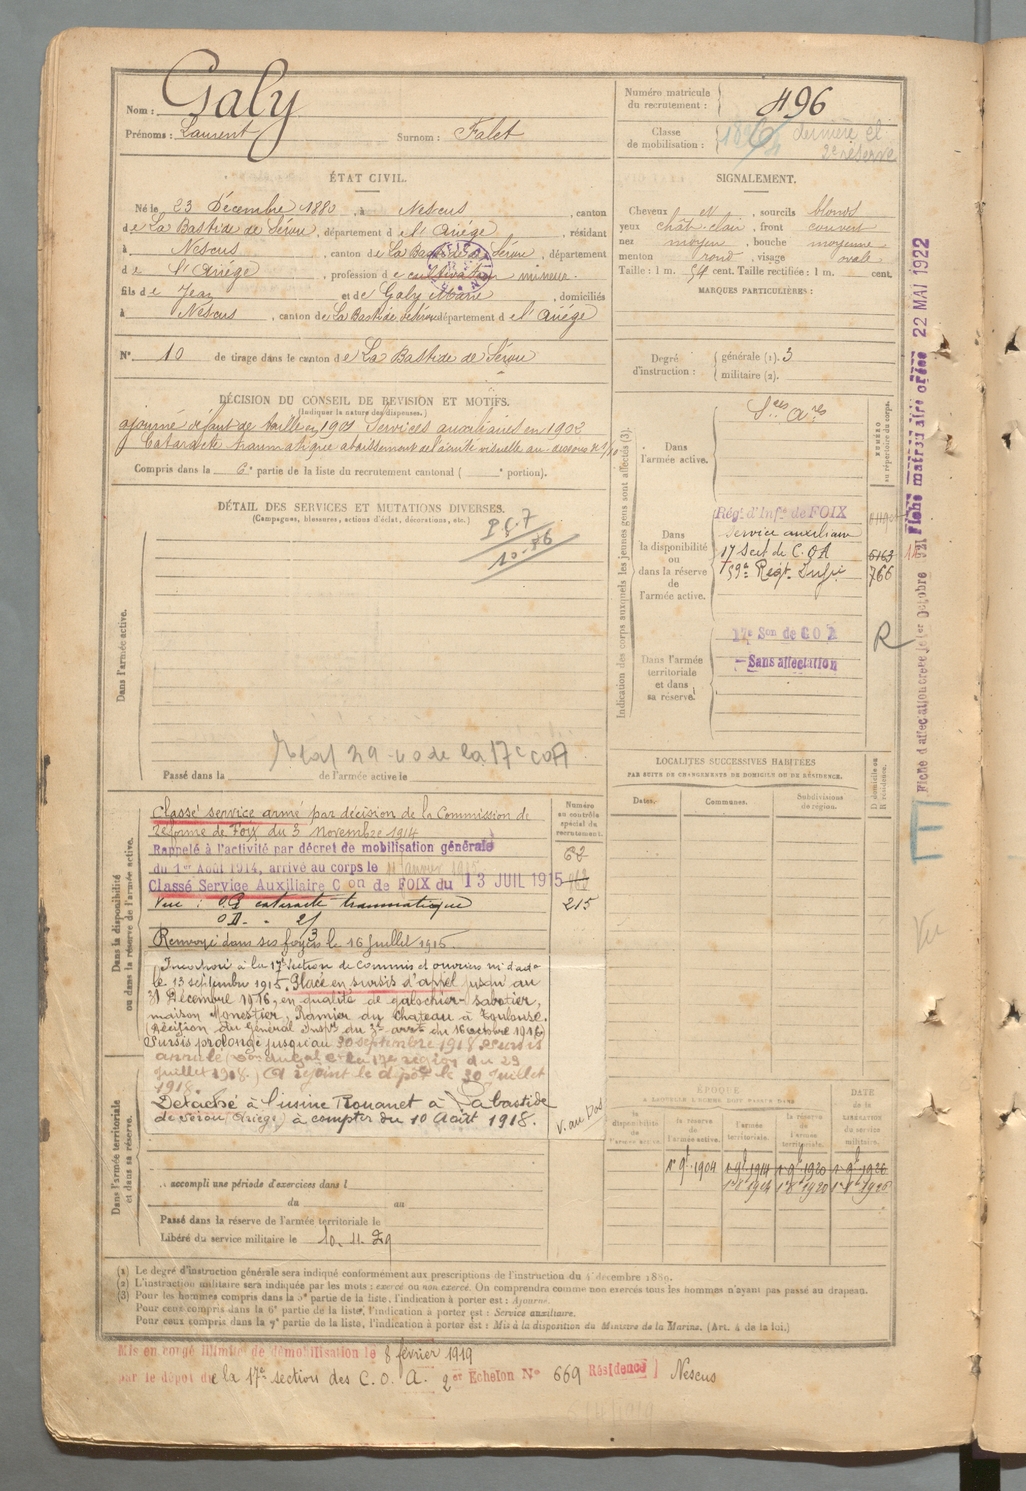 Nom : Galy
Prénoms : Laurent Surnom : Falet
Numéro matricule du recrutement : 496
Classe de mobilisation : dernière cl
2e réserve
ÉTAT CIVIL.
Né le 23 Décembre 1880, à Nescus, canton
de La Bastide de Sérou, département de l'Ariége, résidant
à Nescus, canton de La Bastide de Sérou, département
de l'Ariége, profession de cultivateur mineur
fils de Jean et de Galy Marie, domiciliés
à Nescus, canton de La Bastide de Sérou département de l'Ariége
N° 10 de tirage dans le canton de La Bastide de Sérou
SIGNALEMENT.
Cheveux et, sourcils blonds
yeux chât. clair, front couvert
nez moyen, bouche moyenne
menton rond, visage ovale
Taille : 1 m. 54 cent. Taille rectifiée : 1 m. cent.
MARQUES PARTICULIÈRES :
Degré d'instruction : générale (1). 3
militaire (2).
DÉCISION DU CONSEIL DE REVISION ET MOTIFS.
(Indiquer la nature des dispenses.)
ajourné défaut de taille en 1901 Services auxiliaires en 1903
Cataracte traumatique abaissement de l'acuité visuelle au-dessous de 1/10
Compris dans la 6e partie de la liste du recrutement cantonal ( e portion).
DÉTAIL DES SERVICES ET MUTATIONS DIVERSES.
(Campagnes, blessures, actions d'éclat, décorations, etc.)
Dans l'armée active.
de la 17e COA
Passé dans la de l'armée active le
Indication des corps auxquels les jeunes gens sont affectés (3).
NUMÉRO au répertoire du corps.
Dans l'armée active.
Sces aires
Dans la disponibilité ou dans la réserve de l'armée active.
Régt d'Infie de FOIX
Service auxiliaire
17 Sect de C.O.A 6163
59e Régt Infie 766
Dans l'armée territoriale et dans sa réserve.
17e Son de COA
Sans affectation
R
Fiche matriculaire créée 22 MAI 1922
LOCALITÉS SUCCESSIVES HABITÉES
PAR SUITE DE CHANGEMENTS DE DOMICILE OU DE RÉSIDENCE.
D domicile ou R résidence.
Dates. Communes. Subdivisions de région.
Dans la disponibilité ou dans la réserve de l'armée active.
Numéro au contrôle spécial du recrutement.
Classé service armé par décision de la Commission de
réforme de Foix du 3 novembre 1914
Rappelé à l'activité par décret de mobilisation générale
du 1er Août 1914, arrivé au corps le
Classé Service Auxiliaire Con de FOIX du 13 JUIL 1915
215
Vue : O.G cataracte traumatique
Renvoyé dans ses foyers le 16 Juillet 1915.
à la 17e Section de Commis et ouvriers m. d'adon
le 13 septembre 1915. Placé en sursis d'appel jusqu'au
31 Décembre 1916, en qualité de galochier-sabotier,
maison Monestier, Ramier du Chateau à Toulouse.
(Décision du Général Inspr du 3e arrt du 16 octobre 1916)
Sursis prolongé jusqu'au 30 septembre 1918 Sursis
annulé de la 17e région du 23
juillet 1918) a rejoint le dépôt le 30 juillet
1918.
Détaché à l'usine Rouanet à Labastide
de Sérou (Ariège) à compter du 10 Août 1918.
V. au Dos
Dans l'armée territoriale et dans sa réserve.
accompli une période d'exercices dans l
du au
Passé dans la réserve de l'armée territoriale le
Libéré du service militaire le 10. 11. 29
ÉPOQUE
À LAQUELLE L'HOMME DOIT PASSER DANS
la disponibilité de l'armée active. la réserve de l'armée active. l'armée territoriale. la réserve de l'armée territoriale. DATE de la libération du service militaire.
(1) Le degré d'instruction générale sera indiqué conformément aux prescriptions de l'instruction du 4 décembre 1889.
(2) L'instruction militaire sera indiquée par les mots : exercé ou non exercé. On comprendra comme non exercés tous les hommes n'ayant pas passé au drapeau.
(3) Pour les hommes compris dans la 5e partie de la liste, l'indication à porter est : Ajourné.
Pour ceux compris dans la 6e partie de la liste, l'indication à porter est : Service auxiliaire.
Pour ceux compris dans la 7e partie de la liste, l'indication à porter est : Mis à la disposition du Ministre de la Marine. (Art. 4 de la loi.)
Mis en congé illimité de démobilisation le 8 février 1919
par le dépôt de la 17e section des C. O. A. 2e Echelon N° 669 Résidence Nescus